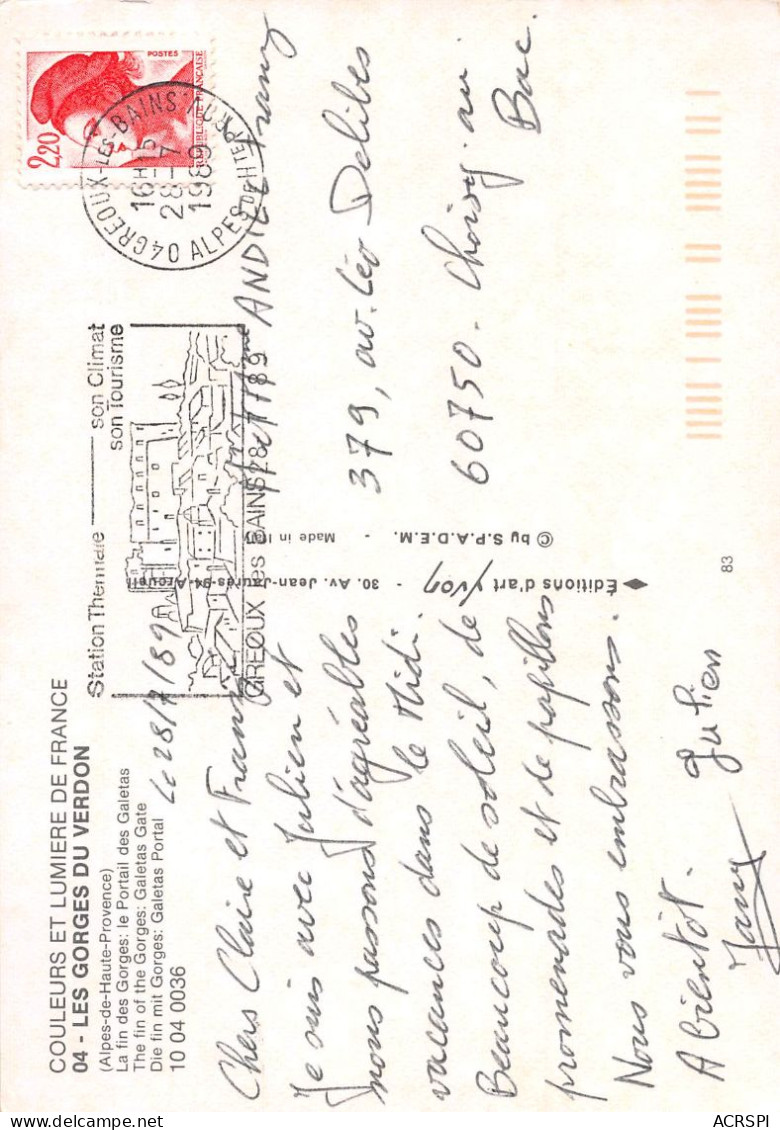 COULEURS ET LUMIERE DE FRANCE
04 - LES GORGES DU VERDON
(Alpes-de-Haute-Provence)
La fin des Gorges: le Portail des Galetas
The fin of the Gorges: Galetas Gate
Die fin mit Gorges: Galetas Portal
10 04 0036
Le 28/7/89
Chers Claire et Franz
Je suis avec Julien et
nous passons d'agréables
vacances dans le Midi.
Beaucoup de soleil, de
promenades et de papillons
Nous vous embrassons.
A bientôt.
Julien
Station Thermale
son Climat
son Tourisme
GREOUX les BAINS
POSTES
2,20
REPUBLIQUE FRANCAISE
04 GREOUX-LES-BAINS
16H15
28-7
1989
ALPES DE HTE PR
ANDIEE Franz
379, av. Léo Delibes
60750 - Choisy-au
Bac.
Éditions d'art Yvon
30. Av. Jean-Jaurès-94-Arcueil
© by S.P.A.D.E.M. - Made in Italy
83
ACRSPI